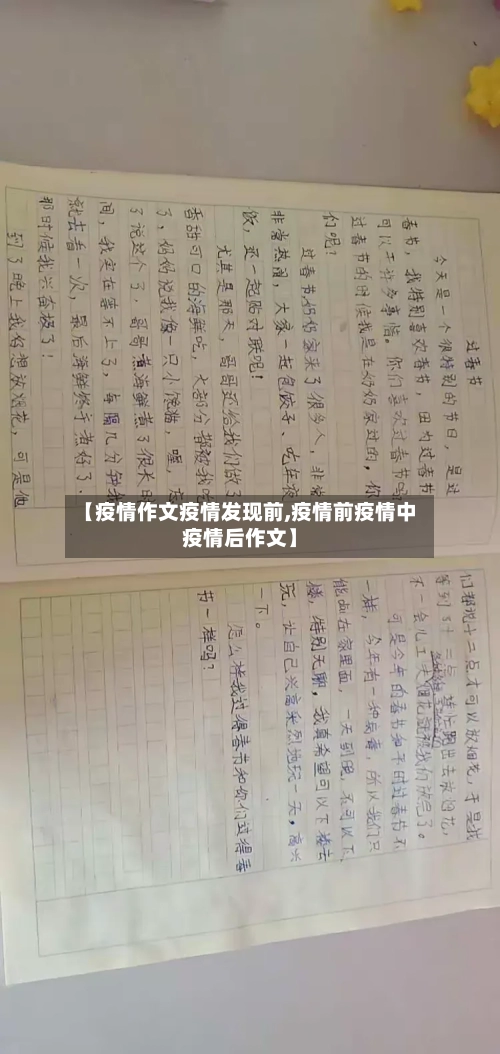 过春节
今天是一个很特别的节日,是过
春节,我特别喜欢春节,因为过春节
可以干许多事情。你们喜欢过春节吗
过春节的时候我是在奶奶家过的,你
们呢?
过春节奶奶家来了很多人,非常
非常热闹,大家一起包饺子、吃年夜
饭,还一起贴对联呢!
尤其是那天,哥哥还给我们做了
香甜可口的海鲜吃,大部分都被我吃
了,妈妈说我像一只小馋猫,喔,
了说这个了,哥哥煮海鲜煮了很长时
间,我实在等不上了,每隔几分钟我
就去看一次,最后海鲜终于煮好了。
那时候我兴奋极了!
到了晚上我好想放烟花,可是他
【疫情作文疫情发现前,疫情前疫情中
疫情后作文】
们都说十二点才可以放烟花,于是我
等到了十二点,赶忙跑出去放烟花,
不一会儿工夫烟花就被我们放完了。
可是今年的春节和平时过春节不
一样,今年有一种病毒,所以我们只
能面在家里面,一天到晚,不可以下
楼,特别无聊,我真希望可以下楼去
玩,让自己兴高采烈地玩一天,高兴
一下。
怎么样我过得春节和你们过得春
节一样吗?